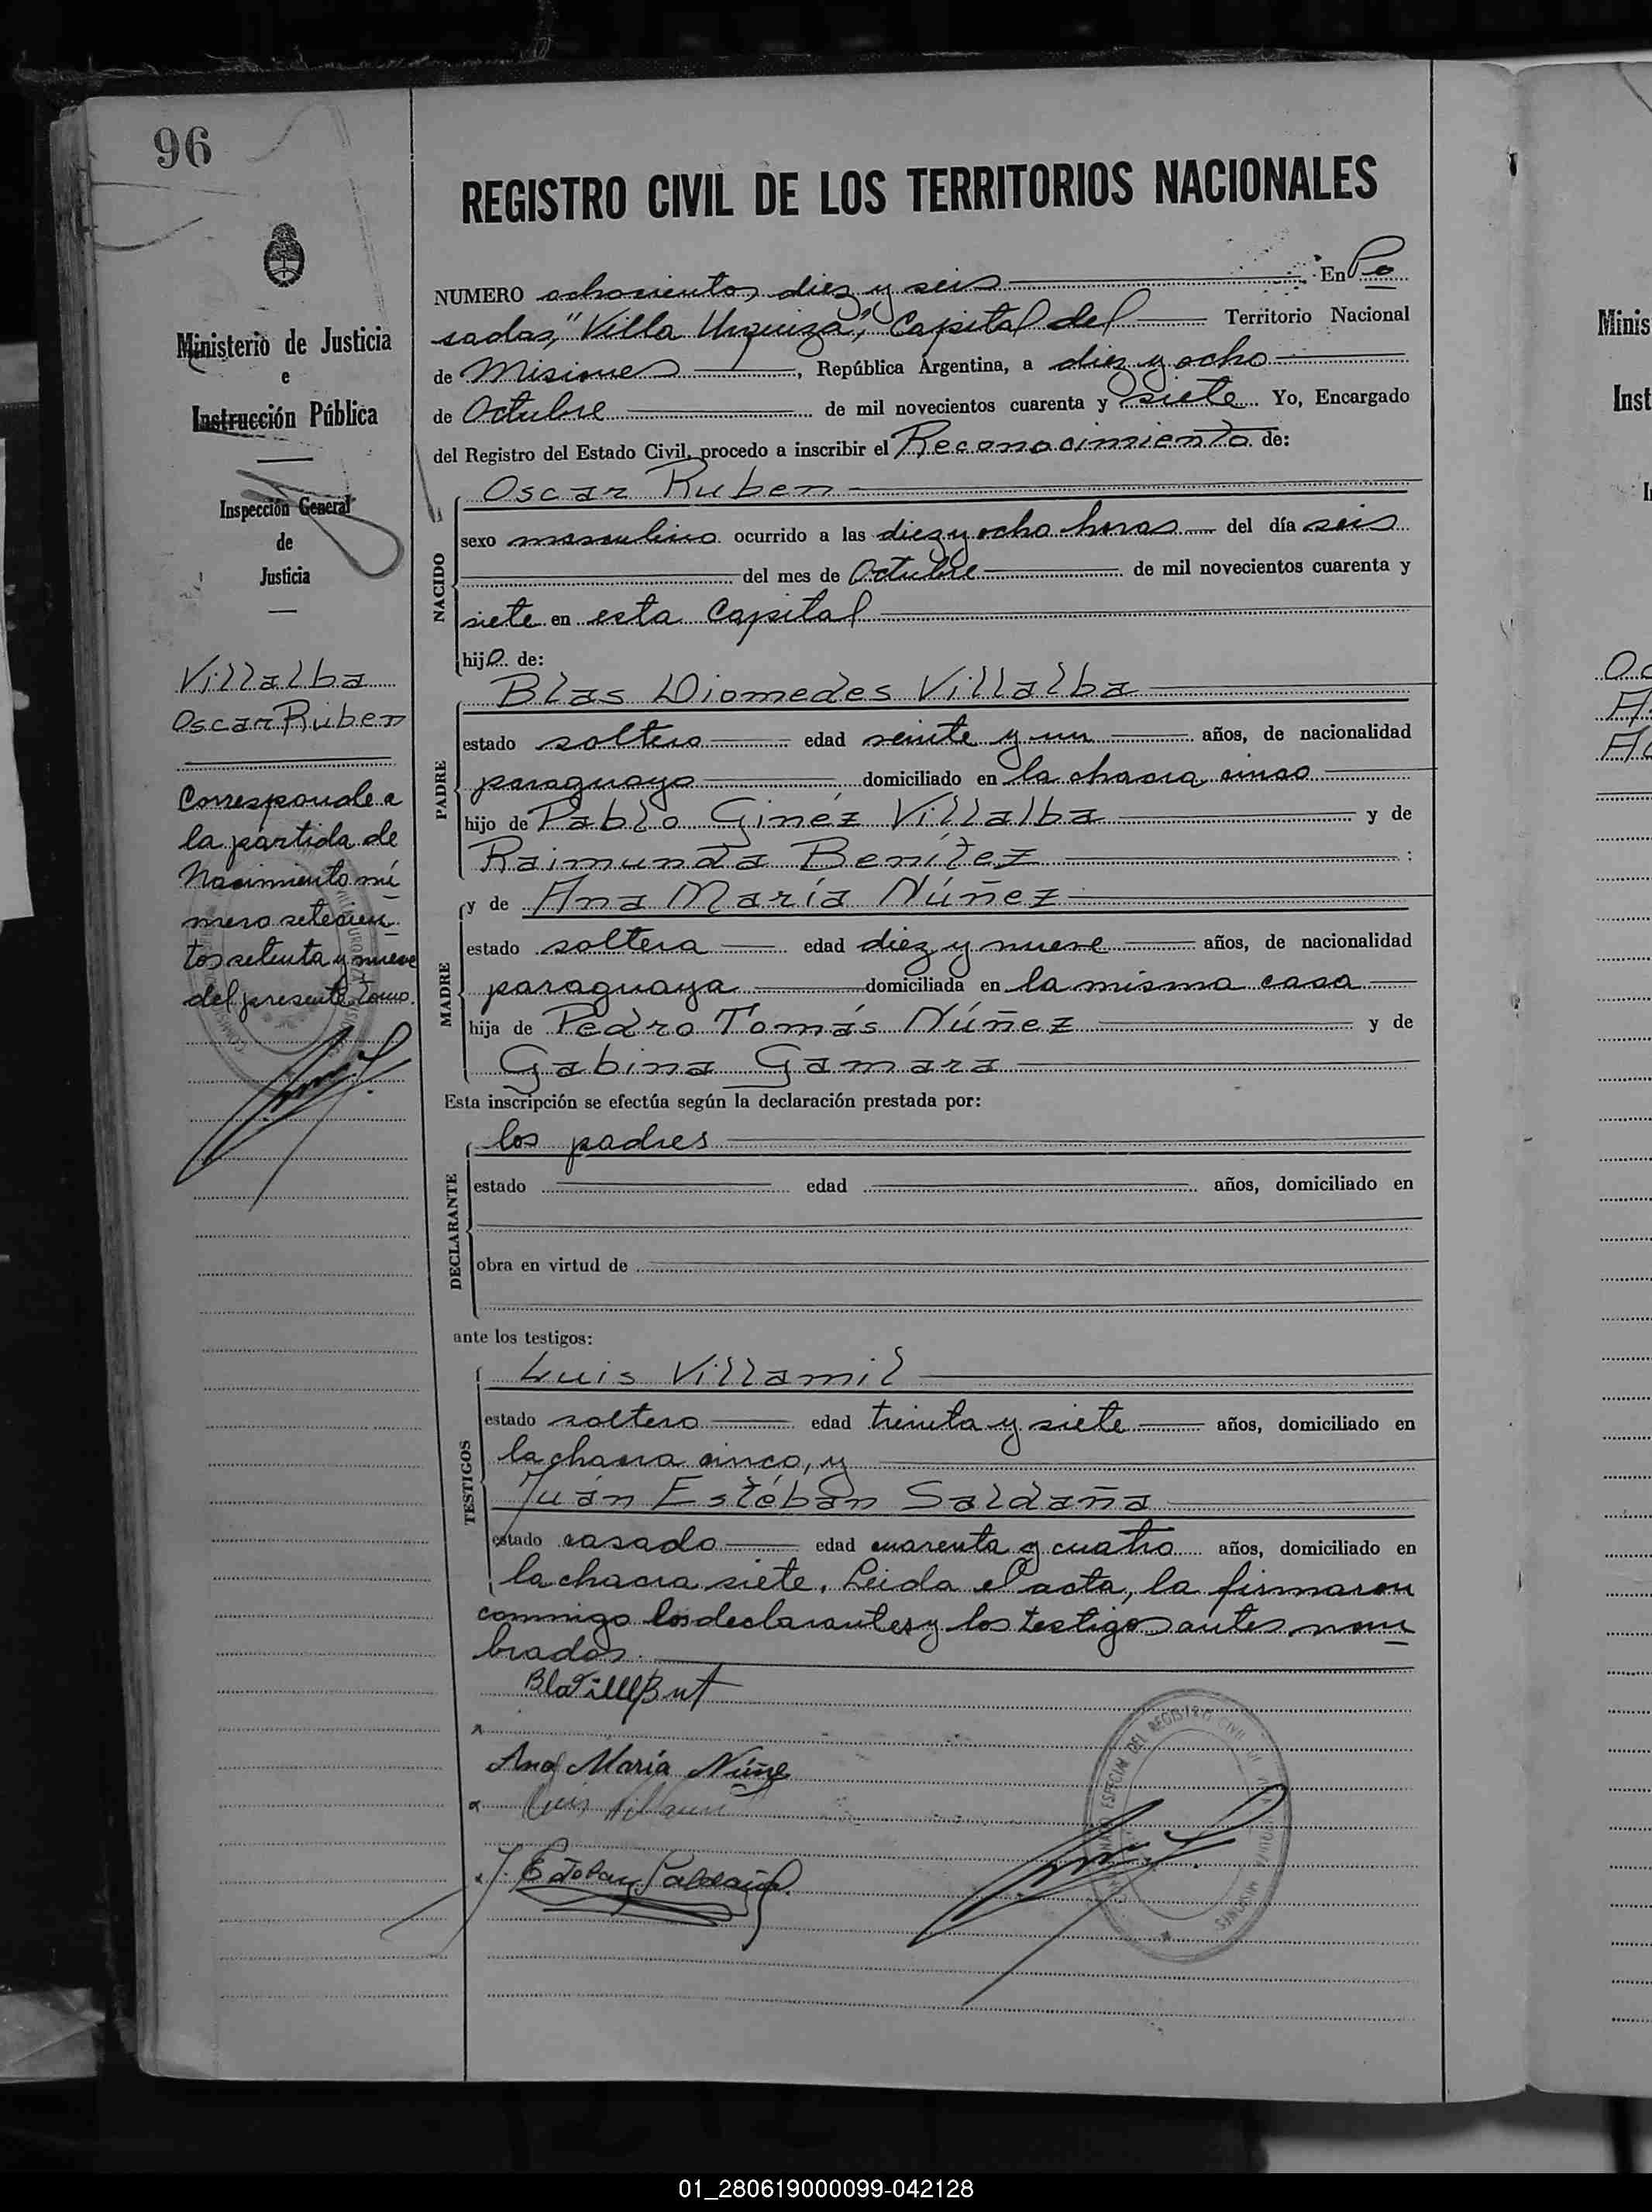 96
REGISTRO CIVIL DE LOS TERRITORIOS NACIONALES
Ministerio de Justicia
e
Instrucción Pública
Inspección General
de
Justicia
Villalba
Oscar Ruben
Corresponde a
la partida de
Nacimiento nú
mero setecien
tos setenta y nueve
del presente tomo.
NUMERO ochocientos diez y seis En Po
sadas, "Villa Urquiza", Capital del Territorio Nacional
de Misiones, República Argentina, a diez y ocho
de Octubre de mil novecientos cuarenta y siete Yo, Encargado
del Registro del Estado Civil, procedo a inscribir el Reconocimiento de:
NACIDO
Oscar Ruben
sexo masculino ocurrido a las diez y ocho horas del día seis
del mes de Octubre de mil novecientos cuarenta y
siete en esta Capital
hijo de:
PADRE
Blas Diomedes Villalba
estado soltero edad veinte y un años, de nacionalidad
paraguayo domiciliado en la chacra cinco
hijo de Pablo Ginéz Villalba y de
Raimunda Benítez :
MADRE
y de Ana María Núñez
estado soltera edad diez y nueve años, de nacionalidad
paraguaya domiciliada en la misma casa
hija de Pedro Tomás Núñez y de
Gabina Gamara
Esta inscripción se efectúa según la declaración prestada por:
DECLARANTE
los padres
estado edad años, domiciliado en
obra en virtud de
ante los testigos:
TESTIGOS
Luis Villamil
estado soltero edad treinta y siete años, domiciliado en
la chacra cinco, y
Juán Estéban Saldaña
estado casado edad cuarenta y cuatro años, domiciliado en
la chacra siete. Leida el acta, la firmaron
conmigo los declarantes y los testigos antes nom
brados.
Ana María Núñe
Luis Villamil
J. Esteban Saldaña
Minis
Inst
01_280619000099-042128